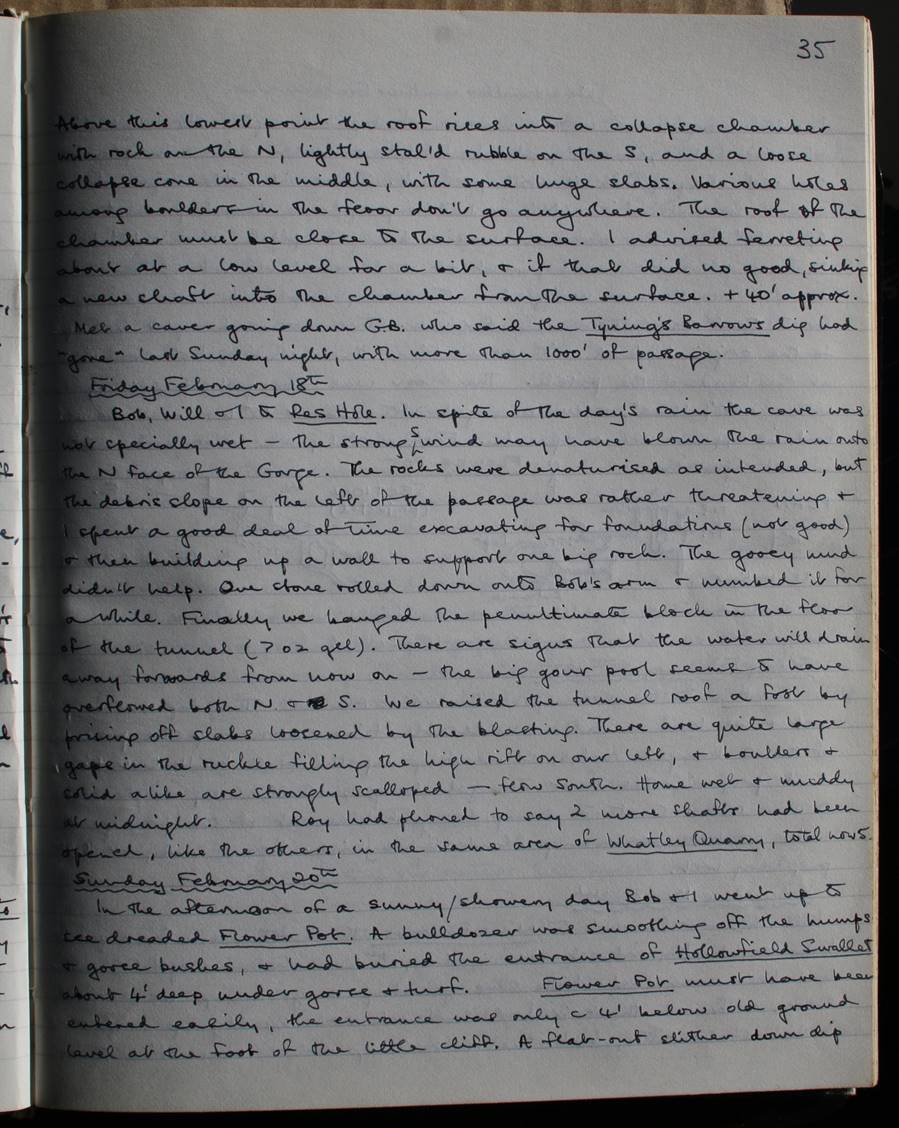 35
Above this lowest point the roof rises into a collapse chamber
with rock on the N, lightly stal'd rubble on the S, and a loose
collapse cone in the middle, with some huge slabs. Various holes
among boulders in the floor don't go anywhere. The roof of the
chamber must be close to the surface. I advised ferreting
about at a low level for a bit, & if that did no good, sinking
a new shaft into the chamber from the surface. + 40' approx.
Met a caver going down G.B. who said the Tyning's Barrows dig had
"gone" last Sunday night, with more than 1000' of passage.
Friday February 18th
Bob, Will & I to Res Hole. In spite of the day's rain the cave was
not specially wet – the strong S wind may have blown the rain onto
the N face of the Gorge. The rocks were denaturised as intended, but
the debris slope on the left of the passage was rather threatening &
I spent a good deal of time excavating for foundations (not good)
& then building up a wall to support one big rock. The gooey mud
didn't help. One stone rolled down onto Bob's arm & numbed it for
a while. Finally we banged the penultimate block in the floor
of the tunnel (7 oz gel). There are signs that the water will drain
away forwards from now on – the big gour pool seems to have
overflowed both N & S. We raised the tunnel roof a foot by
prising off slabs loosened by the blasting. There are quite large
gaps in the ruckle filling the high rift on our left, & boulders &
solid alike are strongly scalloped – flow South. Home wet & muddy
at midnight. Roy had phoned to say 2 more shafts had been
opened, like the others, in the same area of Whatley Quarry, total now 5.
Sunday February 20th
In the afternoon of a sunny/showery day Bob & I went up to
see dreaded Flower Pot. A bulldozer was smoothing off the humps
& gorse bushes, & had buried the entrance of Hollowfield Swallet
about 4' deep under gorse & turf. Flower Pot must have been
entered easily, the entrance was only c 4' below old ground
level at the foot of the little cliff. A flat-out slither down dip